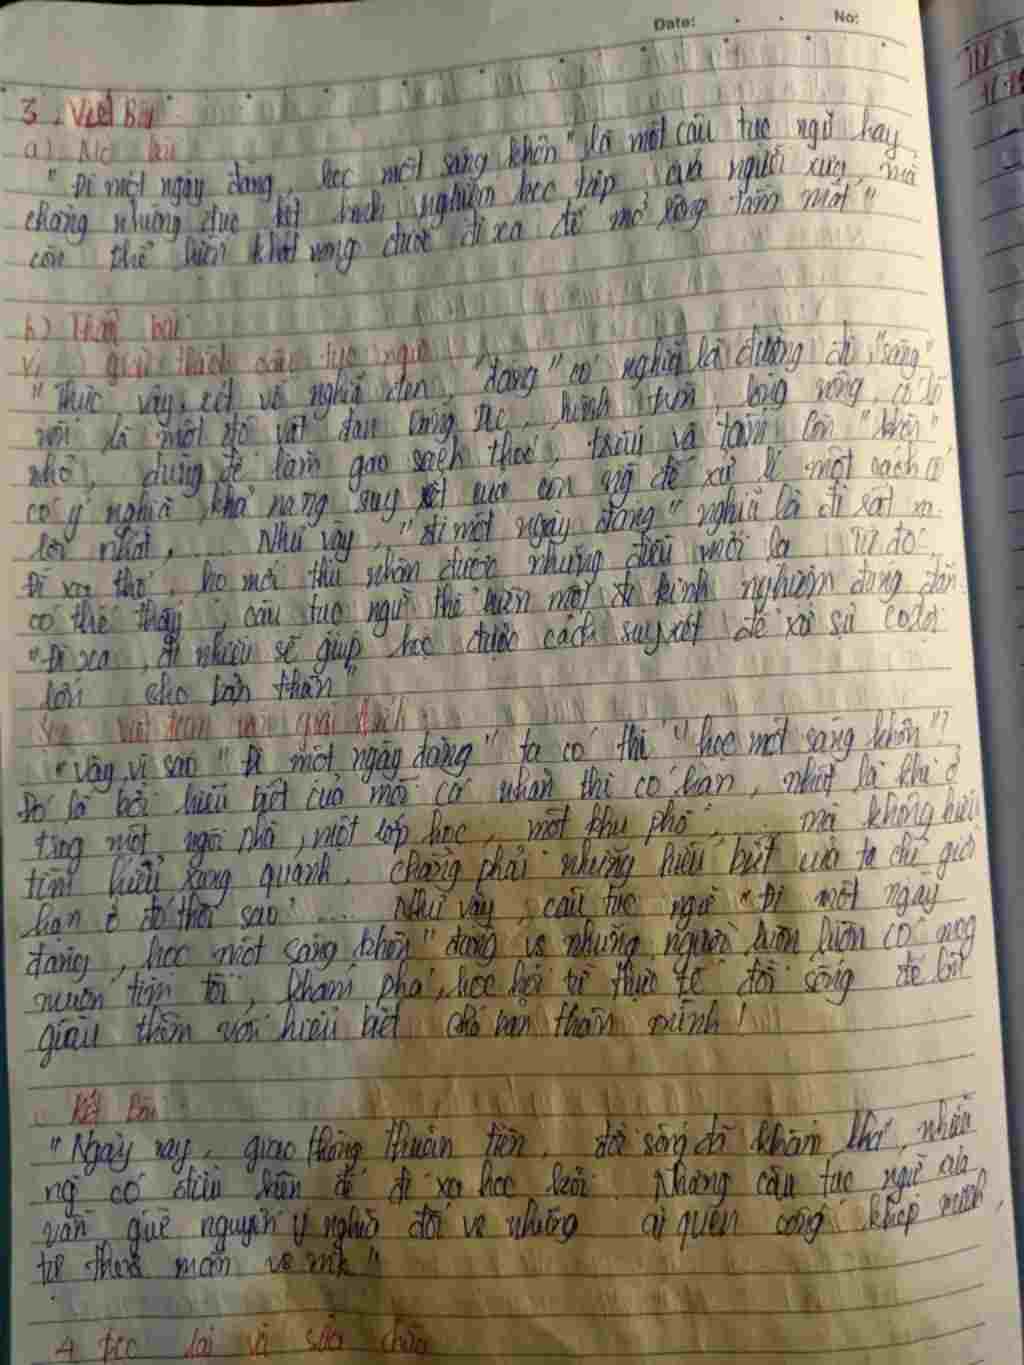 Date: No:
3. Viết Bài
a) Mở bài
" Đi một ngày đàng, học một sàng khôn" là một câu tục ngữ hay,
chẳng những đúc kết kinh nghiệm học tập của người xưa, mà
còn thể hiện khát vọng được đi xa để mở rộng tầm mắt"
b) Thân bài
giải thích câu tục ngữ
" Thực vậy, xét về nghĩa đen, "đàng" có nghĩa là đường đi, "sàng"
là một đồ vật đan bằng tre, hình tròn, lòng rộng, có lỗ
nhỏ, dùng để làm gạo sạch thóc, trấu và tấm. Còn "khôn"
có ý nghĩa khả năng suy xét của con ng để xử lí một cách có
lợi nhất, .... Như vậy, "đi một ngày đàng" nghĩa là đi
Đi xa thế, họ mới thu nhận được những điều mới lạ. Từ đó,
có thể thấy, câu tục ngữ thể hiện một kinh nghiệm đúng đắn
"Đi xa, đi nhiều sẽ giúp học được cách suy xét để xử sự có lợi
lớn cho bản thân"
giải thích
" Vậy, vì sao "Đi một ngày đàng" ta có thể "học một sàng khôn"?
Đó là bởi hiểu biết của mỗi cá nhân thì có hạn, nhất là khi ở
trong một ngôi nhà, một lớp học, một khu phố, .... mà không
tìm hiểu xung quanh. Chẳng phải những hiểu biết của ta chỉ giới
hạn ở đó thôi sao? .... Như vậy, câu tục ngữ "Đi một ngày
đàng, học một sàng khôn" đúng vs những người luôn luôn có mong
muốn tìm tòi, khám phá, học hỏi từ thực tế đời sống để
giàu thêm vốn hiểu biết cho bản thân mình!
Kết Bài
"Ngày nay, giao thông thuận tiện, đời sống đã khấm khá, nhiều
ng có điều kiện để đi xa học hỏi. Nhưng câu tục ngữ
vẫn giữ nguyên ý nghĩa đối vs những ai quen sống khép mình,
tự thỏa mãn vs mk"
4. Đọc lại và sửa chữa